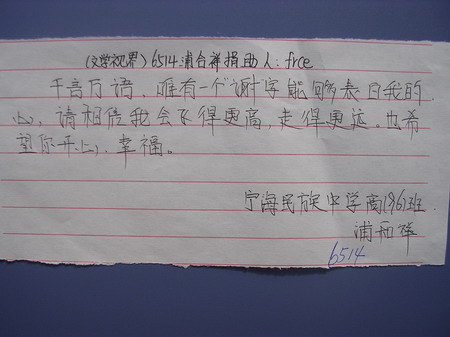 《文学视界》6514.浦合祥捐助人:frce
千言万语、唯有一个"谢"字能够表白我的
心,请相信我会飞得更高,走得更远。也希
望你开心,幸福。
宁海民族中学高196班
浦合祥
6514